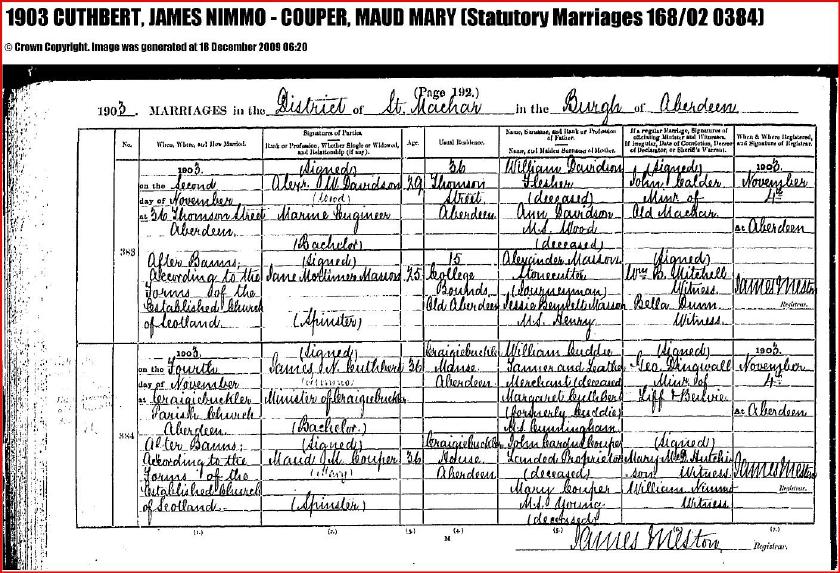 1903 CUTHBERT, JAMES NIMMO - COUPER, MAUD MARY (Statutory Marriages 168/02 0384)
© Crown Copyright. Image was generated at 18 December 2009 06:20
(Page 192.)
1903. MARRIAGES in the District of St. Machar in the Burgh of Aberdeen
No.
When, Where, and How Married.
Signatures of Parties.
Rank or Profession, Whether Single or Widowed, and Relationship (if any).
Age.
Usual Residence.
Name, Surname, and Rank or Profession of Father.
Name, and Maiden Surname of Mother.
If a regular Marriage, Signatures of officiating Minister and Witnesses.
If irregular, Date of Conviction, Decree of Declarator, or Sheriff's Warrant.
When & Where Registered, and Signature of Registrar.
383
1903.
on the Second
day of November
at 36 Thomson Street
Aberdeen.
After Banns;
According to the
Forms of the
Established Church
of Scotland.
(Signed)
Alexr. W. Davidson
(Wood)
Marine Engineer
(Bachelor)
(Signed)
Jane Mortimer Masson
(Spinster)
39
25
36
Thomson
Street
Aberdeen
15
College
Bounds,
Old Aberdeen
William Davidson
Flesher
(deceased)
Ann Davidson
M.S. Wood
(deceased)
Alexander Masson
Stonecutter
(Journeyman)
Jessie Bennett Masson
M.S. Henry.
(Signed)
John Calder
Minr. of
Old Machar.
(Signed)
Wm. B. Mitchell
Witness.
Bella Dunn
Witness.
1903.
November
4th
at Aberdeen
James Meston
Registrar.
384
1903.
on the Fourth
day of November
at Craigiebuckler
Parish Church
Aberdeen
After Banns;
According to the
Forms of the
Established Church
of Scotland.
(Signed)
James N. Cuthbert
(Nimmo)
Minister of Craigiebuckler
(Bachelor.)
(Signed)
Maud M. Couper
(Mary)
(Spinster)
36
36
Craigiebuckler
Manse
Aberdeen
Craigiebuckler
House
Aberdeen
William Cuddie
Tanner and Leather
Merchant (deceased)
Margaret Cuthbert
(formerly Cuddie)
M.S. Cunningham
John Couper
Landed Proprietor
(deceased)
Mary Couper
M.S. Young
(deceased)
(Signed)
Geo. Dingwall
Minr. of
Liff & Benvie
(Signed)
Mary Hutchi-
son Witness
William Nimmo
Witness.
1903.
November
4th
at Aberdeen
James Meston
Registrar.
(1.) (2.) (3.) (4.) (5.) (6.) (7.)
M
James Meston Registrar.